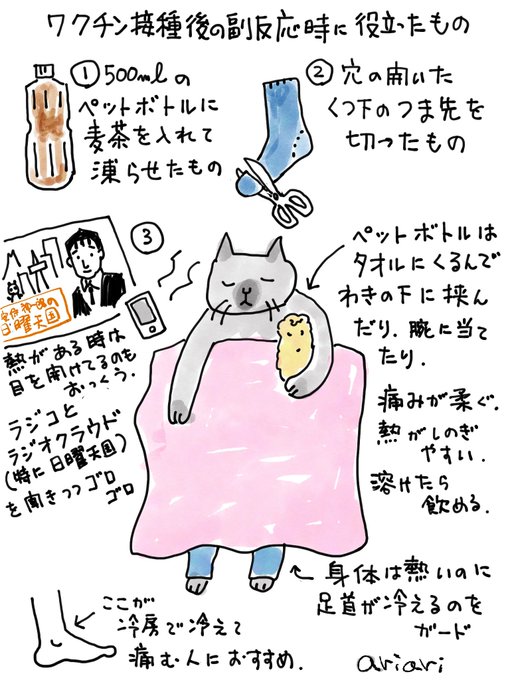 ワクチン接種後の副反応時に役立ったもの
① 500mlの
ペットボトルに
麦茶を入れて
凍らせたもの
② 穴の開いた
くつ下のつま先を
切ったもの
③
日曜天国
熱がある時は
目を開けてるのも
おっくう.
ラジコと
ラジオクラウド
(特に日曜天国)
を聞きつつゴロ
ゴロ
ペットボトルは
タオルにくるんで
わきの下に挟ん
だり.腕に当て
たり.
痛みが柔ぐ.
熱がしのぎ
やすい.
溶けたら
飲める.
身体は熱いのに
足首が冷えるのを
ガード
ここが
冷房で冷えて
痛む人におすすめ.
ariari